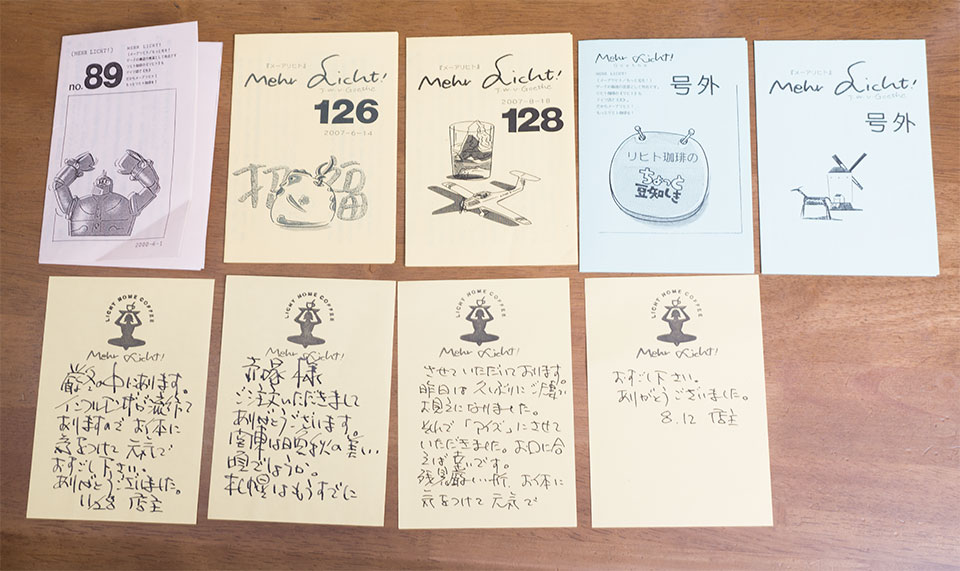 (MEHR LICHT!)
no.89
MEHR LICHT!
2000-4-1
『メーアリヒト』
Mehr Licht!
J.W.v.Goethe
126
2007-6-14
招福
『メーアリヒト』
Mehr Licht!
J.W.v.Goethe
2007-8-18
128
Mehr Licht!
Goethe
MEHR LICHT!
号外
リヒト珈琲の
ちょっと
豆知しき
『メーアリヒト』
Mehr Licht!
J.W.v.Goethe
号外
LICHT HOME COFFEE
Mehr Licht!
厳冬の中にあります。
インフルエンザが流行て
ありますので お体に
気をつけて 元気で
おすごし下さい。
ありがとうございました。
11/28 店主
LICHT HOME COFFEE
Mehr Licht!
赤塚 様
ご注文いただきまして
ありがとうございます。
関東は晩秋の美しい
頃でしょうか。
札幌はもうすでに
LICHT HOME COFFEE
Mehr Licht!
させていただいております。
昨日は 久しぶりにご
になりました。
「アイズ」にさせて
いただきました。お口に合
えば幸いです。
残暑厳しい折、お体に
気をつけて 元気で
LICHT HOME COFFEE
Mehr Licht!
おすごし下さい。
ありがとうございました。
8.12 店主